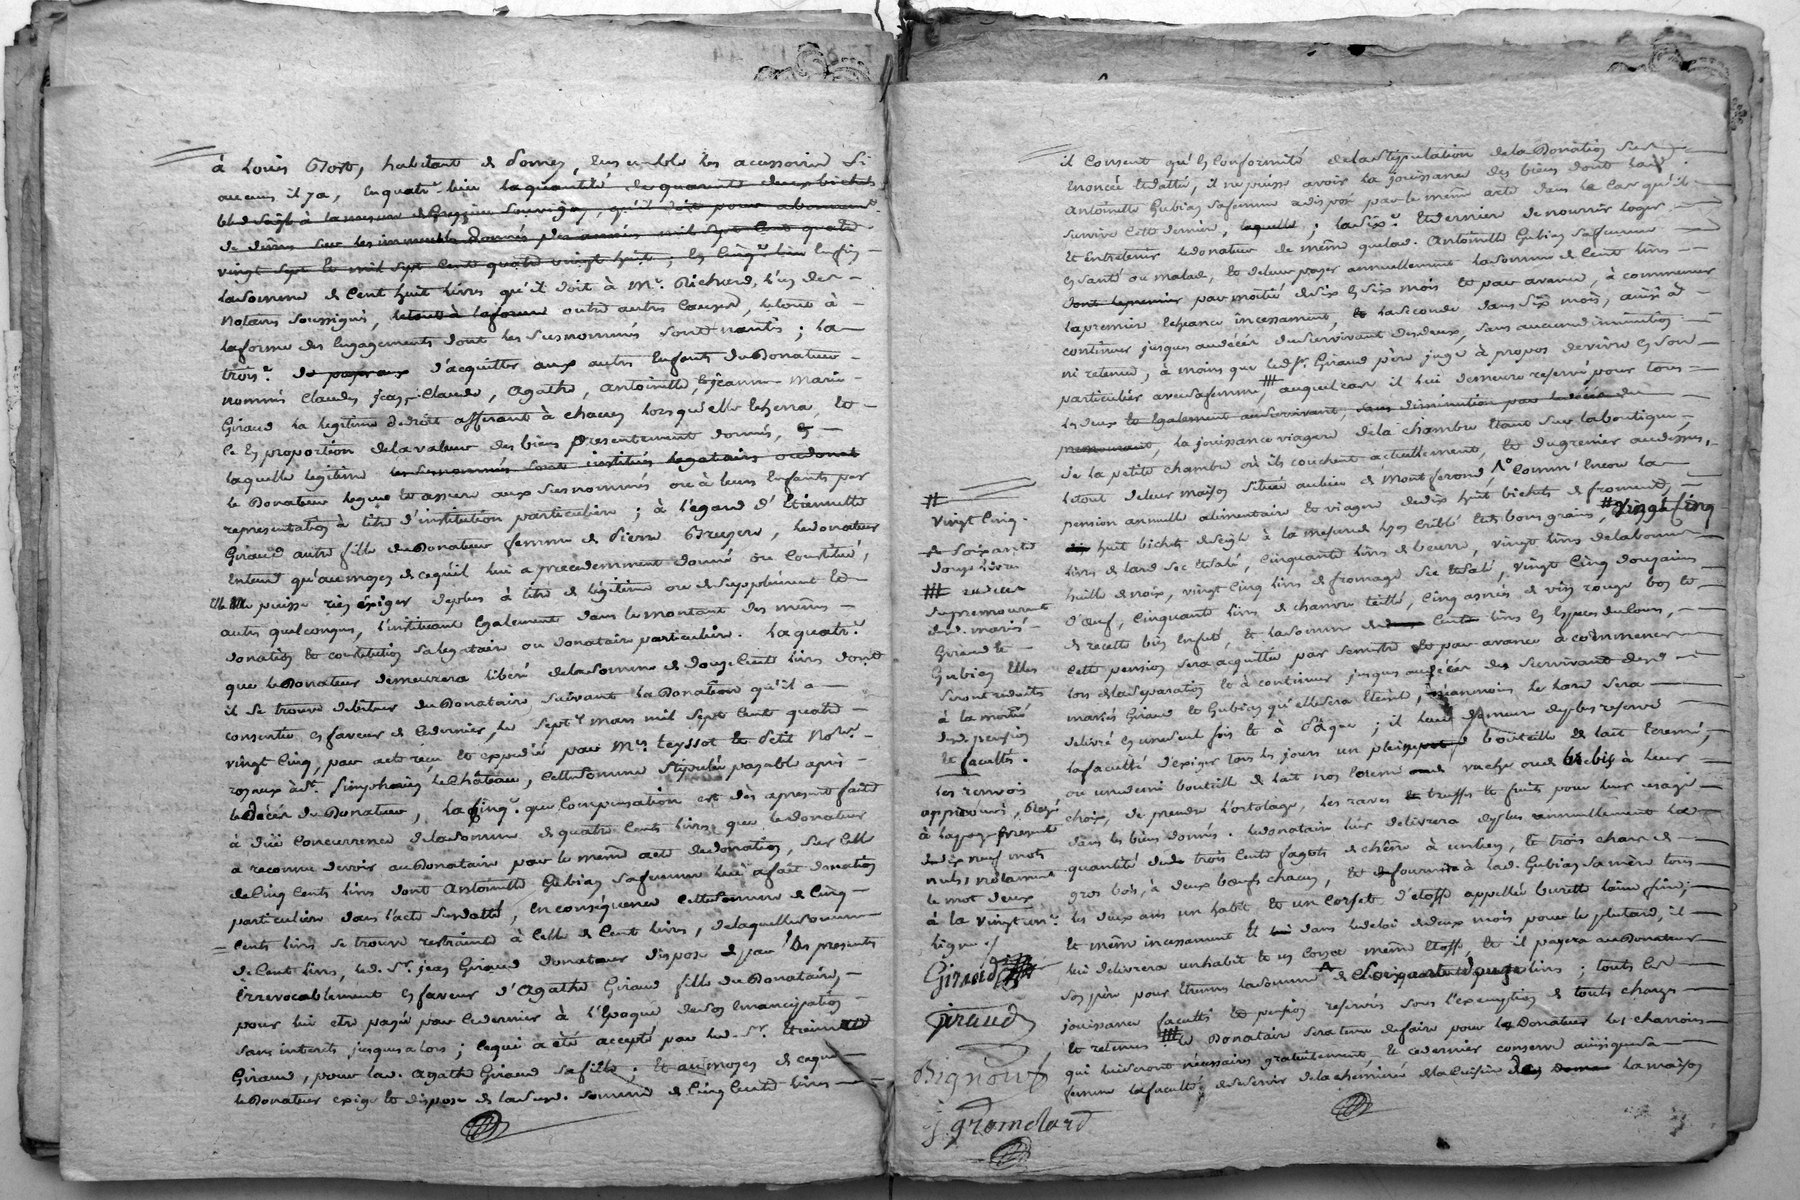 à Louis Mort, habitant de Pomey, ensemble les accessoires si
aucuns il y a, en quatre. lieu la quantité de quarante deux bichets
bled seigle à la mesure de
de dixme sur les immeubles donnés pour années mil sept cent quatre
vingt sept et mil sept cent quatre vingt huit; en cinqe. lieu enfin
la somme de cent huit livres qu'il doit à Me. Richard, l'un des
notaires soussignés, le tout à la forme outre autres causes, le tout à
la forme des engagements dont les susnommés sont nantis; la
trois.e de payer aux d'acquitter aux autres enfants du Donateur
nommés Claude, jean-Claude, Agathe, Antoinette, et jeanne marie
Giraud la légitime de droit afférant à chacun lorsqu'elle echerra, et
ce en proportion de la valeur des biens presentement donnés, et
laquelle légitime les susnommés sont institués legataires ou donat
le Donateur legue et assure aux susnommés ou à leurs Enfants par
representation à titre d'institution particuliere; à l'égard d'Etiennette
Giraud autre fille du Donateur femme de Pierre Bruyere, le donateur
entend qu'au moyen de ce qu'il lui a precedemment donné ou constitué,
elle ne puisse rien éxiger de plus à titre de légitime ou de supplément et
autres quelconques, l'instituant également dans le montant des mêmes
donation et constitution sa legataire ou donataire particuliere. La quatr.e
que le Donateur demeurera libéré de la somme de douze cents livres dont
il se trouve débiteur du Donataire suivant la Donation qu'il a
consentie en faveur de ce dernier, le sept.e mars mil sept cent quatre
vingt cinq, par acte reçu et expédié par Mes. Teyssot et Petit Notres.
royaux à St. Simphorien le Château, cette somme stipulée payable après
le Décès du Donateur, la cinq.e que compensation est dès apresent faite
à düe concurrence de la somme de quatre cents livres que le donateur
a reconnu devoir au Donataire par le même acte de donation, sur celle
de cinq cents livres dont Antoinette Gubian sa femme lui a fait donation
particuliere dans l'acte susdatté, en conséquence cette somme de cinq
cents livres se trouve restrainte à celle de cent livres, de laquelle somme
de cent livres, led. Sr. jean Giraud donateur dispose par les presentes
irrevocablement en faveur d'Agathe Giraud fille du Donataire,
pour lui etre payée par ce dernier à l'époque de son emancipation
sans interets jusques alors; ce qui a été accepté par led. Sr. Etienne
Giraud, pour lad. Agathe Giraud sa fille; Et au moyen de ce que
le Donateur exige et dispose de la susd. somme de cinq cents livres
il consent qu'en conformité de la stipulation de la Donation sus
enoncée et dattée, il ne puisse avoir la jouissance des biens dont lad.
Antoinette Gubian sa femme a disposé par le même acte dans le cas qu'il
survive cette derniere, laquelle; la six.e et derniere de nourrir loger
et entretenir le donateur de même que lad. Antoinette Gubian sa femme
en santé ou malade, et de leur payer annuellement la somme de cent livres
dont le premier par moitié de six en six mois et par avance, à commencer
la premiere echeance incessamment, et la seconde dans six mois, ainsi à
continuer jusques au décès du survivant des deux, sans aucune diminution
ni retenue, à moins que led. Sr. Giraud père juge à propos de vivre en son
particulier avec sa femme, # auquel cas il lui demeure reservé pour tous
les deux et également au survivant, sans diminution par le décès du
premourant, la jouissance viagere de la chambre étant sur la boutique,
de la petite chambre où ils couchent actuellement, et du grenier au dessus,
le tout de leur maison située au lieu de Montferond, comm' encore la
pension annuelle alimentaire et viagere de dix huit bichets de froment, # vingt cinq
huit bichets de seigle à la mesure de Lyon criblé et de bons grains,
livres de lard sec et salé, cinquante livres de beurre, vingt livres de la bonne
huille de noix, vingt cinq livres de fromage sec et salé, vingt cinq douzaines
d'œuf, cinquante livres de chanvre teillé, cinq asnées de vin rouge bon et
de recette bien enfuté, et la somme de cents livres en Espèces du cours,
cette pension sera acquittée par semestre et par avance à commencer
lors de la séparation et à continuer jusques au décès du survivant desd.
mariés Giraud et Gubian qu'elle sera éteinte, neanmoins le lard sera
délivré en une seul fois et à Pâque; il leur demeure de plus reservé
la faculté d'exiger tous les jours un plein bouteille de lait écremé,
ou une demi bouteille de lait non écremé de vache ou de brebis à leur
choix, de prendre l'ortolage, les raves et truffes et fruits pour leur usage
dans les biens donnés. le donataire leur délivrera de plus annuellement la
quantité de trois cents fagots de chêne à un lien, et trois chars de
gros bois, à deux bœufs chacun, et de fournir à lad. Gubian sa mère tous
les deux ans un habit et un corset d'étoffe appellée burette laine fine;
et même incessamment et dans le delai de deux mois pour le plutard, il
lui délivrera un habit et un corset même étoffe, et il payera au Donateur
son père pour étrennes la somme de livres; toutes les
jouissance facultés et pension reservés sous l'exemption de toutes charges
et retenues # le Donataire sera tenu de faire pour le Donateur les charrois
qui lui seront nécessaires gratuitement, et ce dernier conserve ainsi que sa
femme la faculté de se servir de la cheminée de la cuisine de la maison
#
vingt cinq.
soixante
douze livres
# au décès
du premourant
desd. mariés
Giraud et
Gubian elles
seront reduits
à la moitié
desd. pension
et facultés.
Les renvois
approuvés, Rayé
à la page presente
dix neuf mots
nuls, notamment
le mot deux
à la vingt une.
ligne
Giraud
giraud
Bignout
J. gromolard